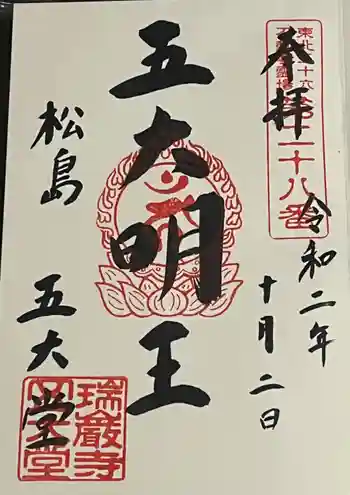 奉拝
東北三十六
第二十八番
令和二年
十月二日
五大明王
松島
五大堂
瑞巌寺
五大堂